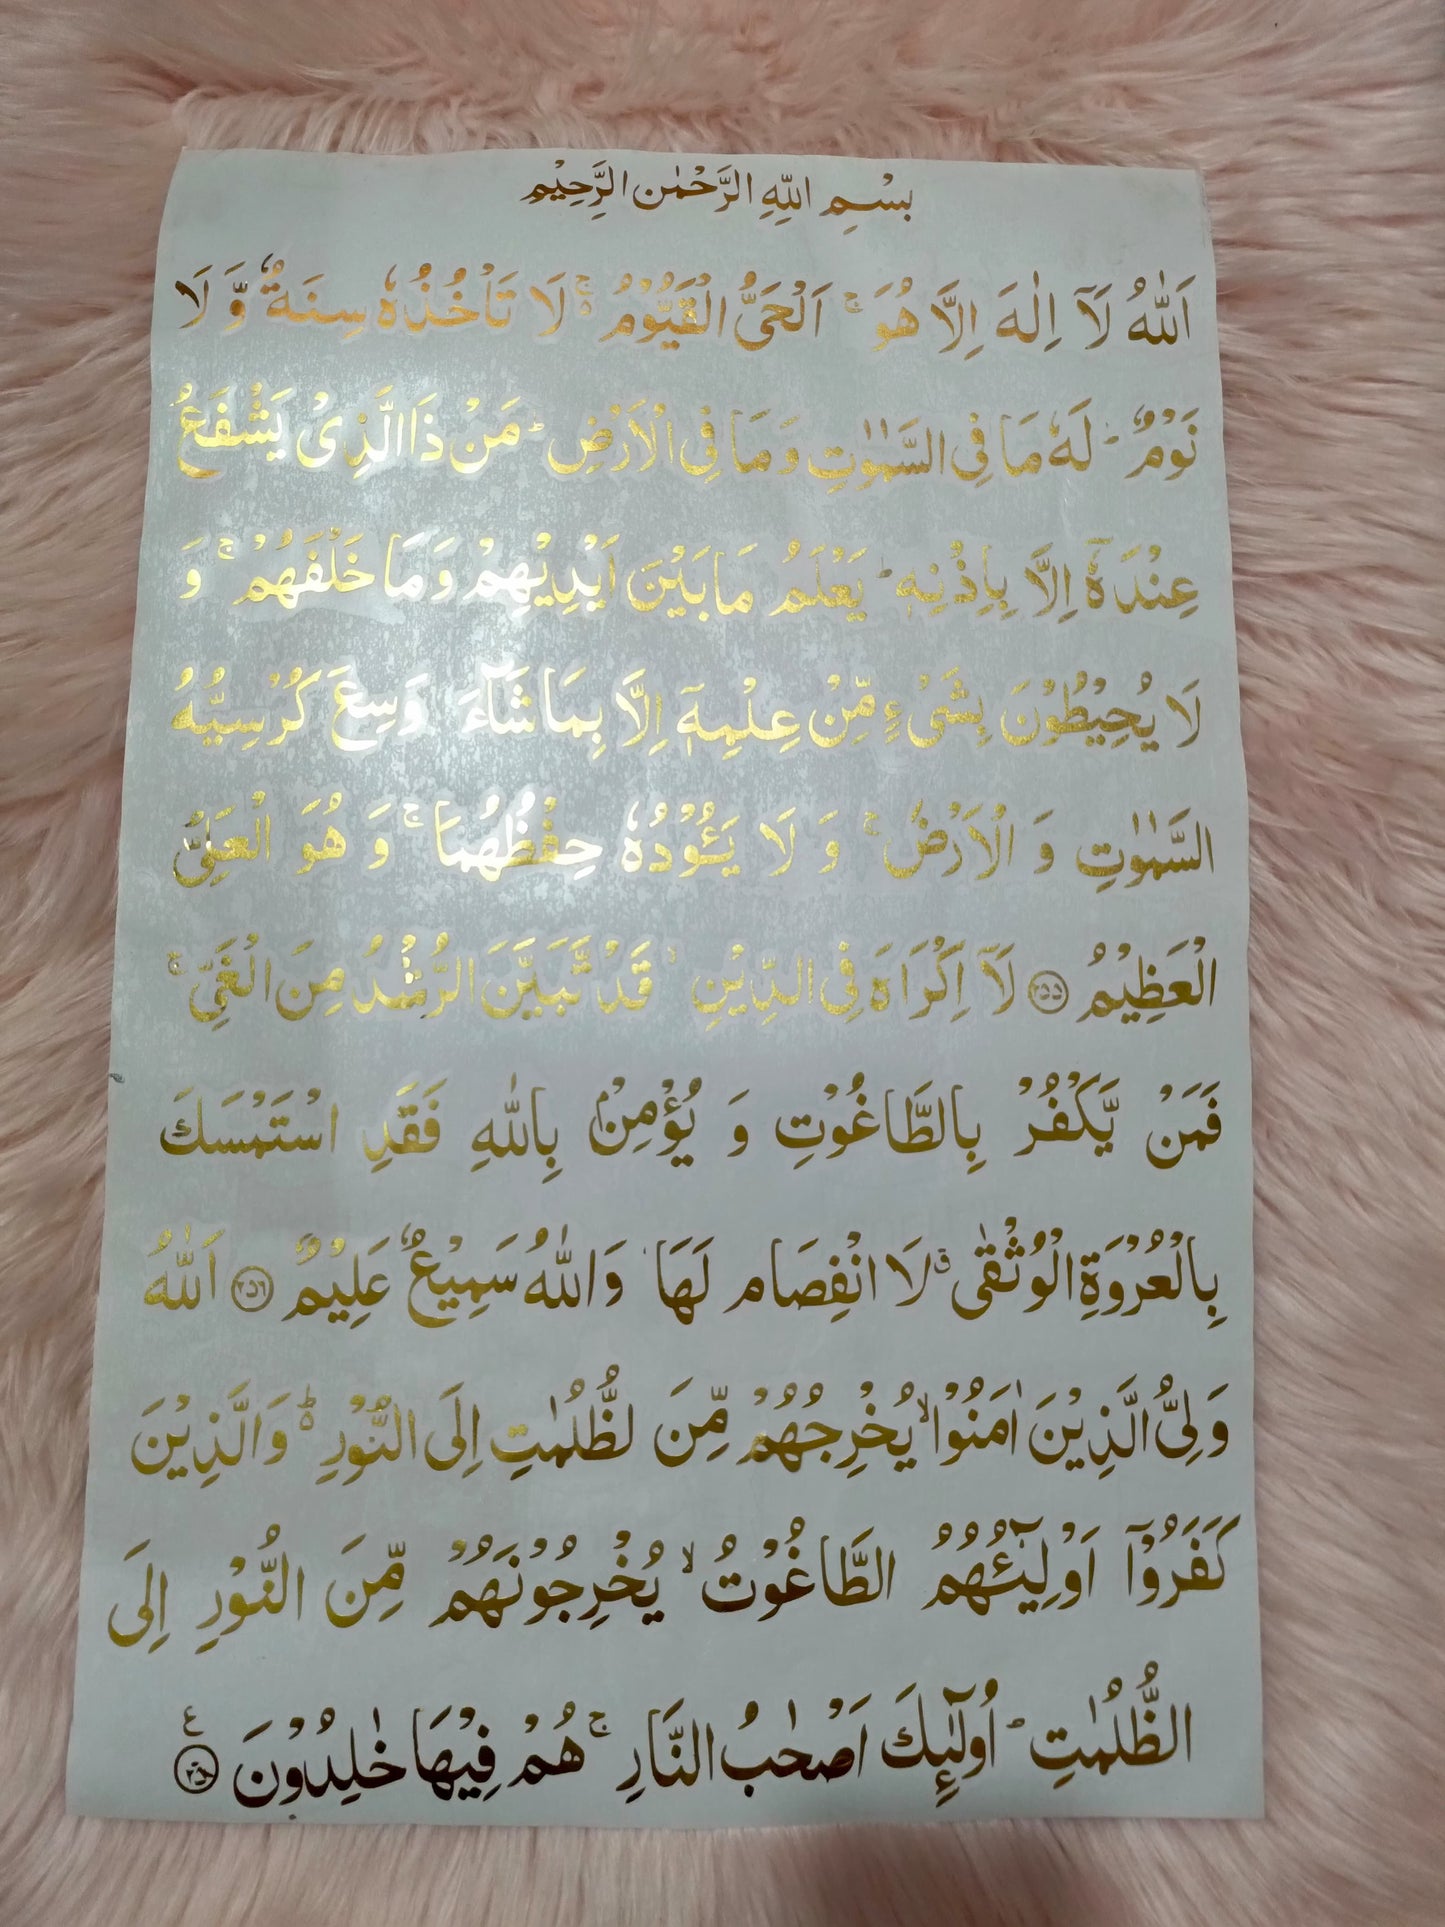 بِسْمِ اللّٰهِ الرَّحْمٰنِ الرَّحِيْمِ
اَللّٰهُ لَآ اِلٰهَ اِلَّا هُوَ ۚ اَلْحَیُّ الْقَيُّوْمُ ۚ۬ لَا تَاْخُذُهٗ سِنَةٌ وَّ لَا
نَوْمٌ ؕ لَهٗ مَا فِی السَّمٰوٰتِ وَ مَا فِی الْاَرْضِ ؕ مَنْ ذَا الَّذِیْ يَشْفَعُ
عِنْدَهٗۤ اِلَّا بِاِذْنِهٖ ؕ يَعْلَمُ مَا بَيْنَ اَيْدِيْهِمْ وَ مَا خَلْفَهُمْ ۚ وَ
لَا يُحِيْطُوْنَ بِشَیْءٍ مِّنْ عِلْمِهٖۤ اِلَّا بِمَا شَآءَ ۚ وَسِعَ كُرْسِيُّهُ
السَّمٰوٰتِ وَ الْاَرْضَ ۚ وَ لَا يَـُٔوْدُهٗ حِفْظُهُمَا ۚ وَ هُوَ الْعَلِیُّ
الْعَظِيْمُ ۝۲۵۵ لَاۤ اِكْرَاهَ فِی الدِّيْنِ ۙ قَدْ تَّبَيَّنَ الرُّشْدُ مِنَ الْغَیِّ ۚ
فَمَنْ يَّكْفُرْ بِالطَّاغُوْتِ وَ يُؤْمِنْۢ بِاللّٰهِ فَقَدِ اسْتَمْسَكَ
بِالْعُرْوَةِ الْوُثْقٰی ۗ لَا انْفِصَام لَهَا ؕ وَ اللّٰهُ سَمِيْعٌ عَلِيْمٌ ۝۲۵۶ اَللّٰهُ
وَلِیُّ الَّذِيْنَ اٰمَنُوْا ۙ يُخْرِجُهُمْ مِّنَ لظُّلُمٰتِ اِلَی النُّوْرِ ؕ۬ وَ الَّذِيْنَ
كَفَرُوْۤا اَوْلِيٰٓـُٔهُمُ الطَّاغُوْتُ ۙ يُخْرِجُوْنَهُمْ مِّنَ النُّوْرِ اِلَی
الظُّلُمٰتِ ؕ اُولٰٓئِكَ اَصْحٰبُ النَّارِ ۚ هُمْ فِيْهَا خٰلِدُوْنَ ۝۲۵۷ ع